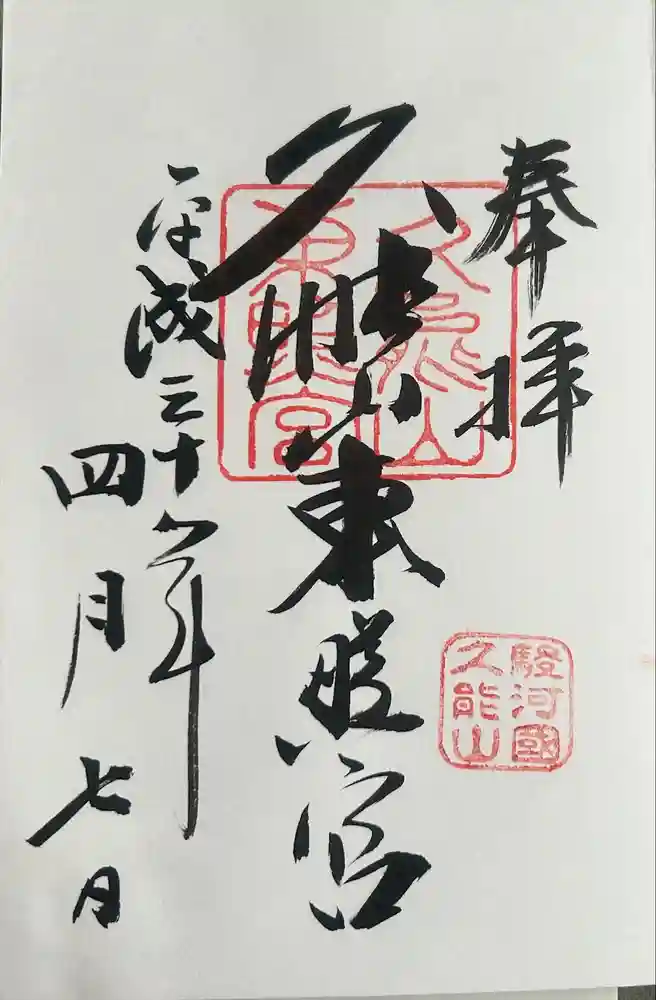 奉拝
久能山
東照宮
久能山東照宮
駿河國
久能山
平成三十年
四月七日